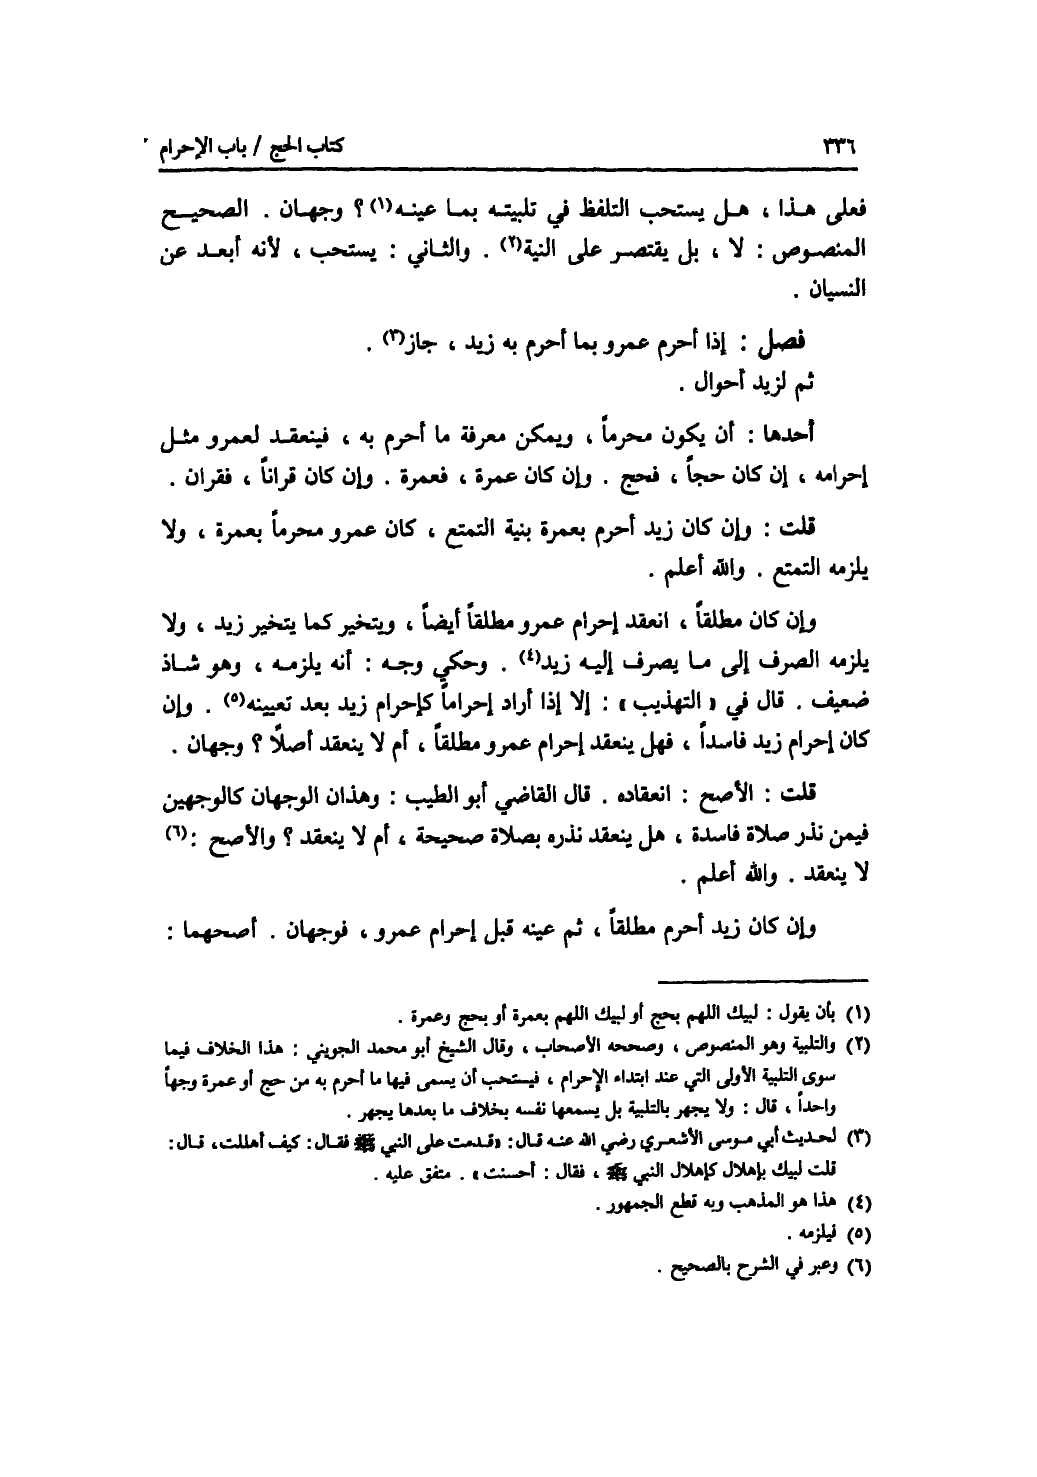 ٣٣٦
كتاب الحج / باب الإحرام
فعلى هـذا ، هـل يستحب التلفظ في تلبيتـه بمـا عينـه(١) ؟ وجهـان . الصحيـح
المنصـوص : لا ، بل يقتصـر على النية(٢) . والثـاني : يستحب ، لأنه أبعـد عن
النسيان .
فصل : إذا أحرم عمرو بما أحرم به زيد ، جاز(٣) .
ثم لزيد أحوال .
أحدها : أن يكون محرماً ، ويمكن معرفة ما أحرم به ، فينعقـد لعمرو مثـل
إحرامه ، إن كان حجاً ، فحج . وإن كان عمرة ، فعمرة . وإن كان قراناً ، فقران .
قلت : وإن كان زيد أحرم بعمرة بنية التمتع ، كان عمرو محرماً بعمرة ، ولا
يلزمه التمتع . والله أعلم .
وإن كان مطلقاً ، انعقد إحرام عمرو مطلقاً أيضاً ، ويتخير كما يتخير زيد ، ولا
يلزمه الصرف إلى مـا يصرف إليـه زيد(٤) . وحكي وجـه : أنه يلزمـه ، وهو شـاذ
ضعيف . قال في « التهذيب » : إلا إذا أراد إحراماً كإحرام زيد بعد تعيينه(٥) . وإن
كان إحرام زيد فاسداً ، فهل ينعقد إحرام عمرو مطلقاً ، أم لا ينعقد أصلًا ؟ وجهان .
قلت : الأصح : انعقاده . قال القاضي أبو الطيب : وهذان الوجهان كالوجهين
فيمن نذر صلاة فاسدة ، هل ينعقد نذره بصلاة صحيحة ، أم لا ينعقد ؟ والأصح :(٦)
لا ينعقد . والله أعلم .
وإن كان زيد أحرم مطلقاً ، ثم عينه قبل إحرام عمرو ، فوجهان . أصحهما :
(١) بأن يقول : لبيك اللهم بحج أو لبيك اللهم بعمرة أو بحج وعمرة .
(٢) والتلبية وهو المنصوص ، وصححه الأصحاب ، وقال الشيخ أبو محمد الجويني : هذا الخلاف فيما
سوى التلبية الأولى التي عند ابتداء الإحرام ، فيستحب أن يسمى فيها ما أحرم به من حج أو عمرة وجهاً
واحداً ، قال : ولا يجهر بالتلبية بل يسمعها نفسه بخلاف ما بعدها يجهر .
(٣) لحديث أبي مـوسى الأشعـري رضي الله عنـه قـال : «قـدمت على النبي ﷺ فقـال : كيف أهللت، قـال :
قلت لبيك بإهلال كإهلال النبي ﷺ ، فقال : أحسنت » . متفق عليه .
(٤) هذا هو المذهب وبه قطع الجمهور .
(٥) فيلزمه .
(٦) وعبر في الشرح بالصحيح .